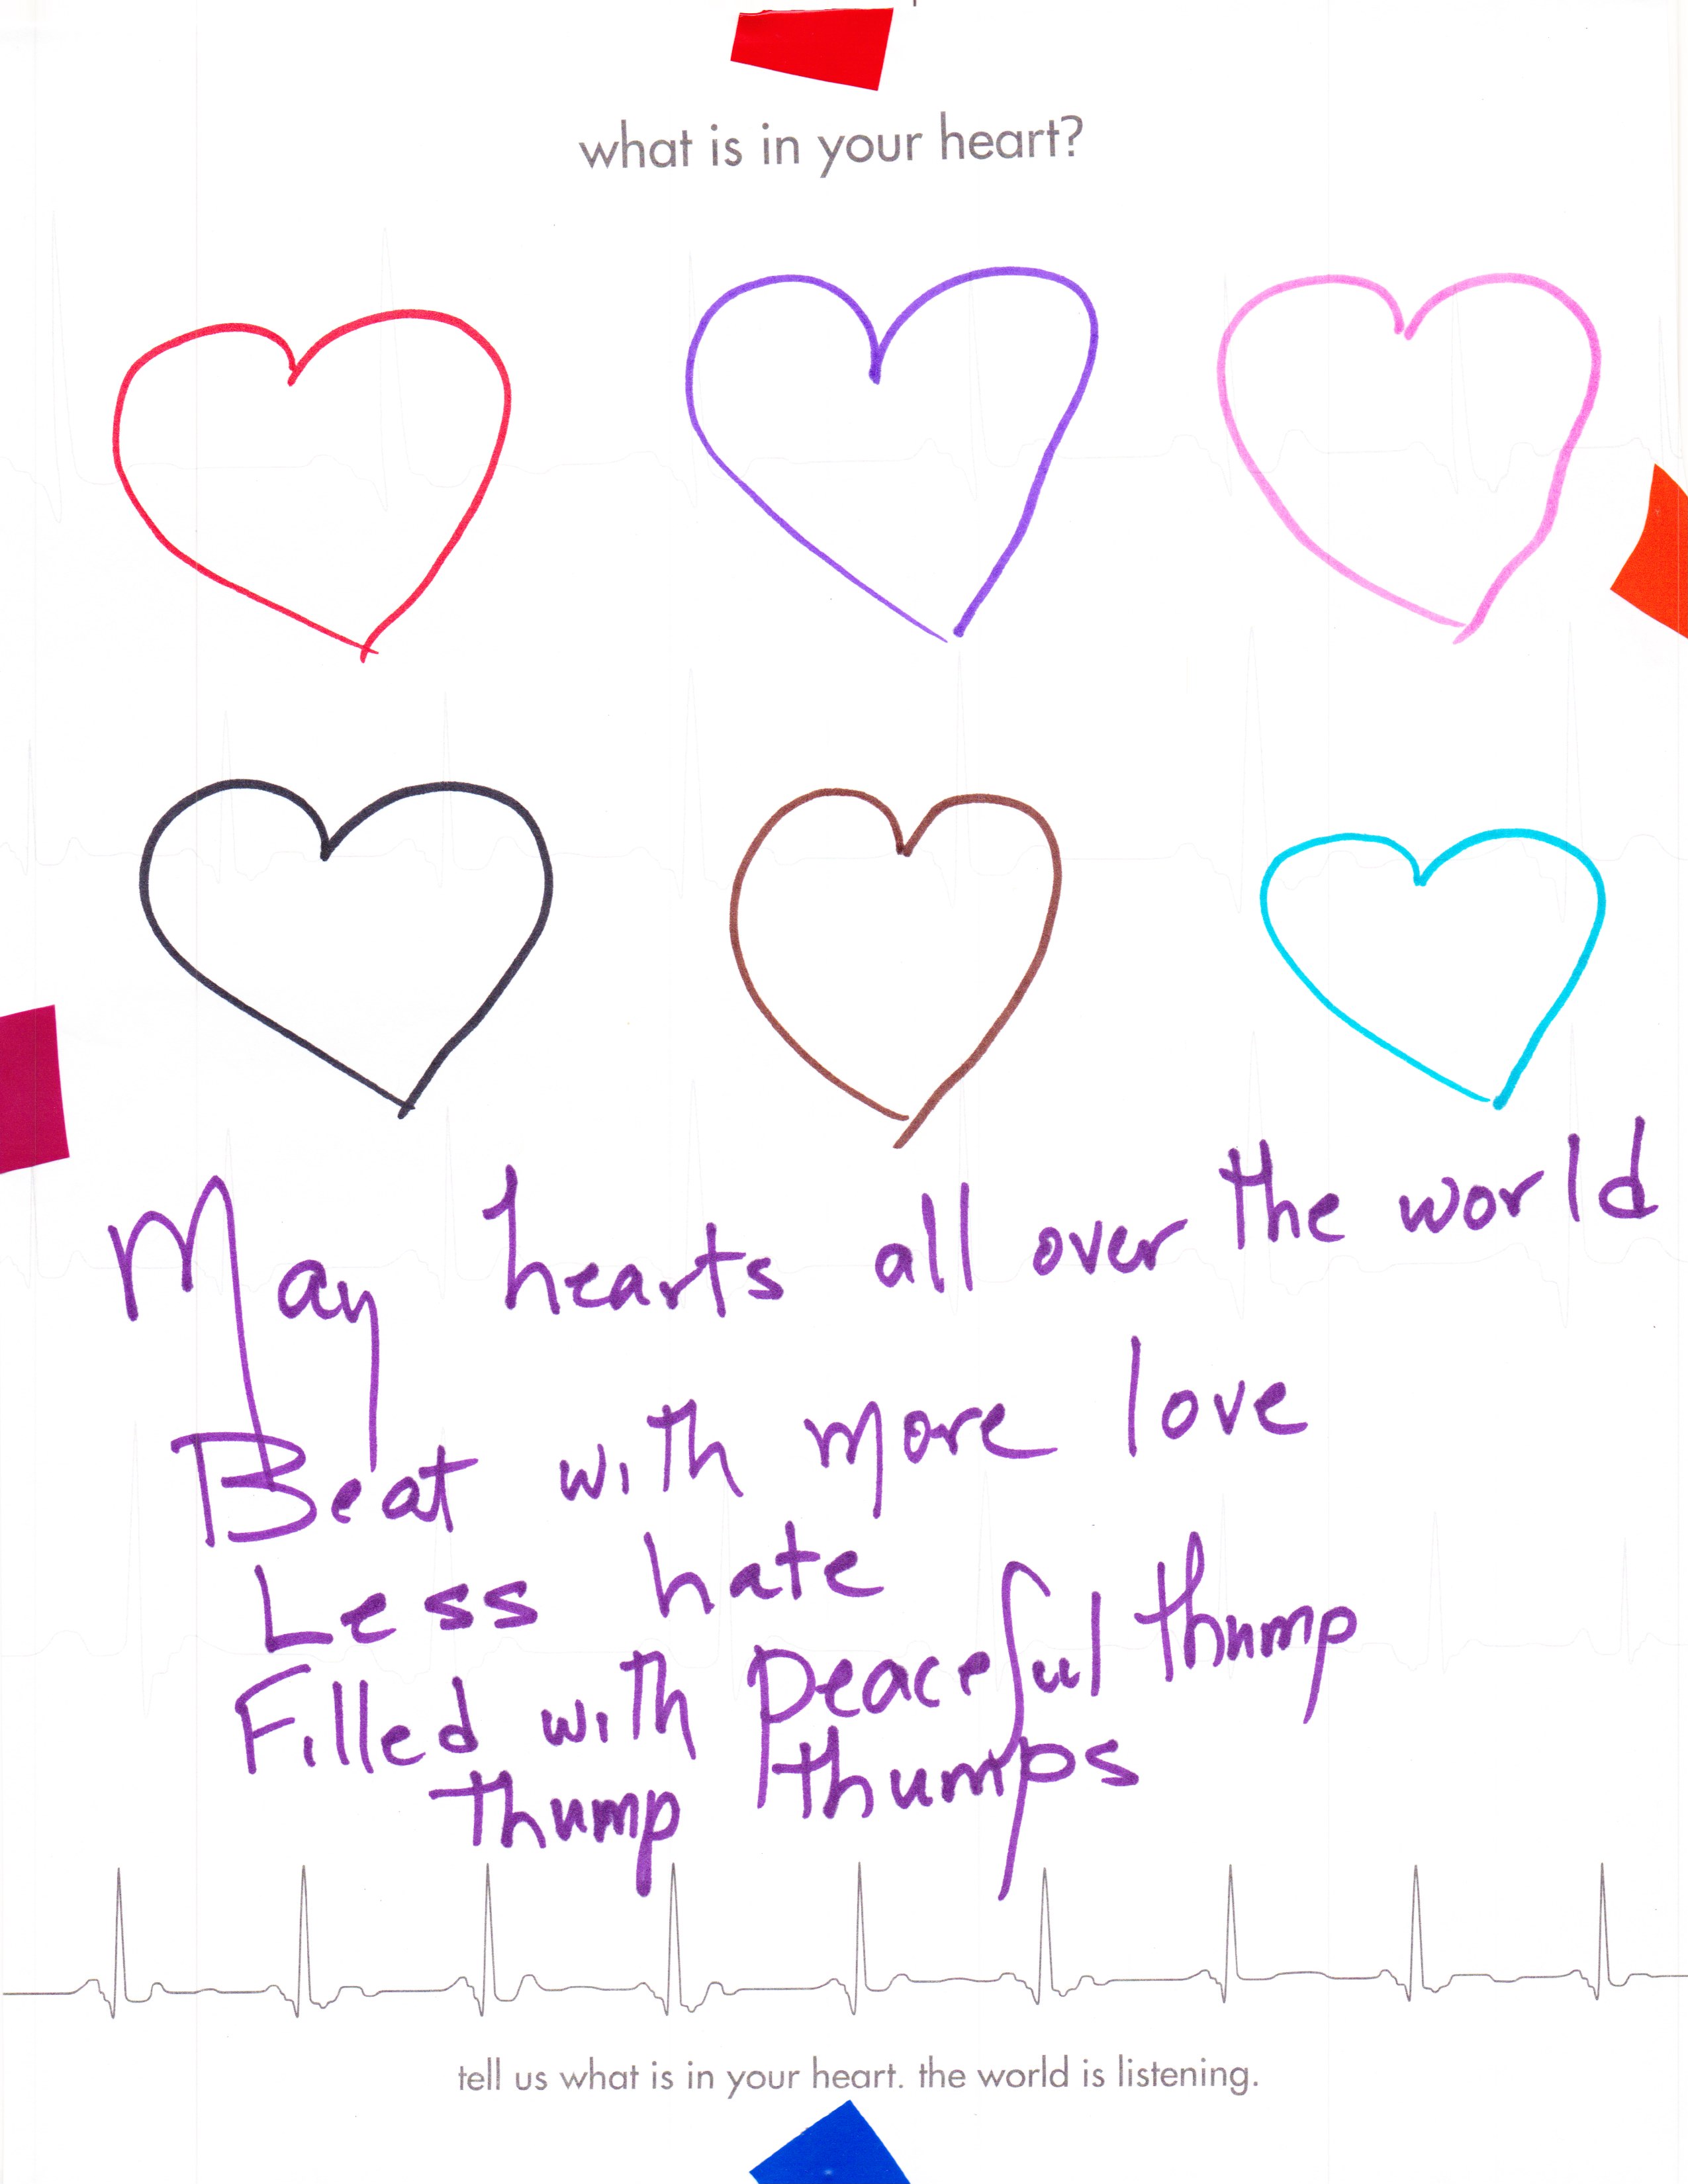 what is in your heart?
May hearts all over the world
Beat with more love
Less hate
Filled with peaceful thump
thump thumps
tell us what is in your heart. the world is listening.